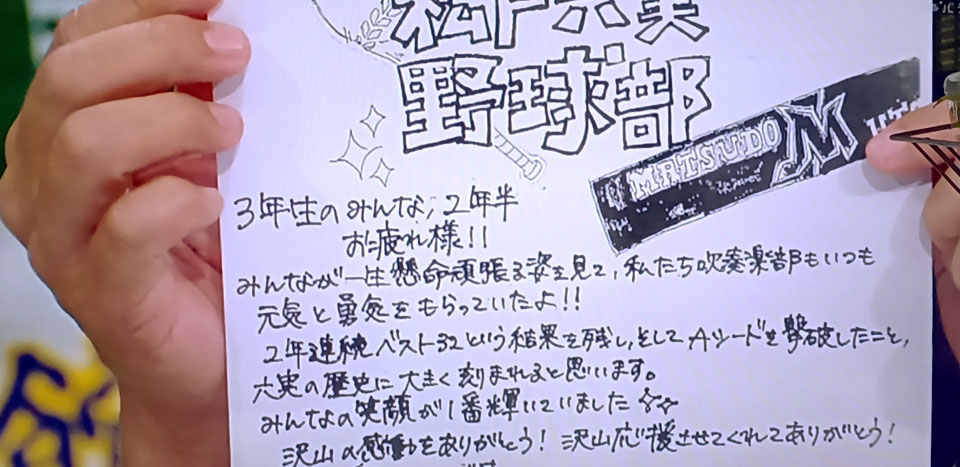 松戸六実
野球部
MATSUDO M
3年生のみんな、2年半
お疲れ様!!
みんなが一生懸命頑張る姿を見て、私たち吹奏楽部もいつも
元気と勇気をもらっていたよ!!
2年連続ベスト32という結果を残し、そしてAシードを撃破したこと、
六実の歴史に大きく刻まれると思います。
みんなの笑顔が1番輝いていました
沢山の感動をありがとう! 沢山応援させてくれてありがとう!